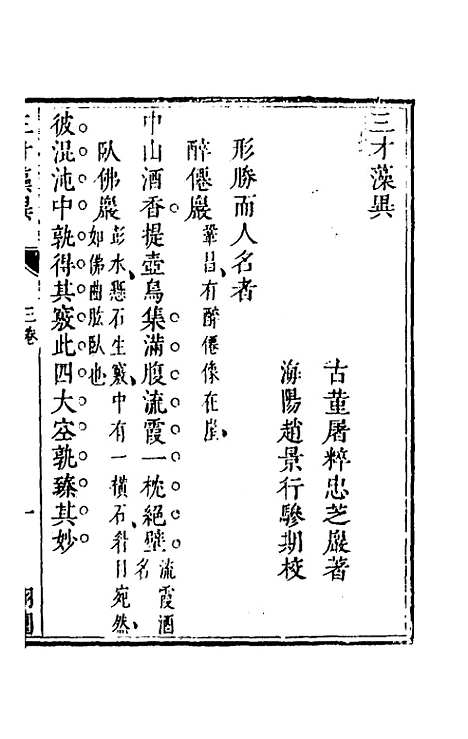 三才藻異
古董屠粹忠芝巖著
海陽趙景行驂期校
形勝而人名者
醉僊巖 鞏昌有醉僊像在崖
中山酒香提壺鳥集滿腹流霞一枕絕壁 流霞酒名
臥佛巖 彭水懸石生竅中有一橫石眉目宛然如佛曲肱臥也
彼混沌中孰得其竅此四大空孰臻其妙
三才藻異 三卷 一